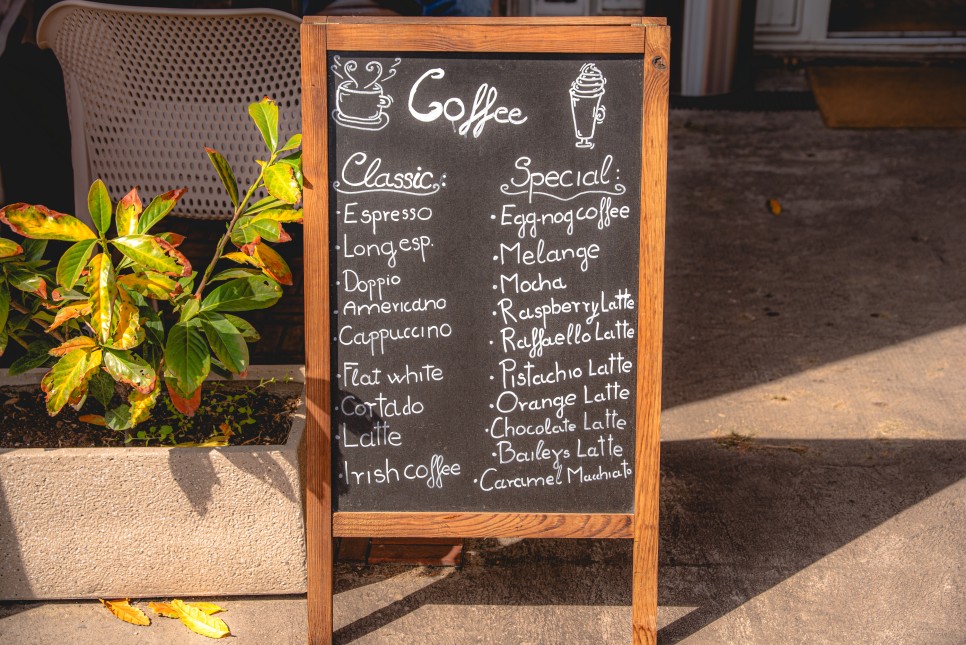 Coffee
Classic:
Espresso
Long esp.
Doppio
Americano
Cappuccino
Flat white
Cortado
Latte
Irish coffee
Special:
· Egg-nog coffee
· Melange
· Mocha
· Raspberry Latte
· Raffaello Latte
· Pistachio Latte
· Orange Latte
· Chocolate Latte
· Baileys Latte
· Caramel Macchiato